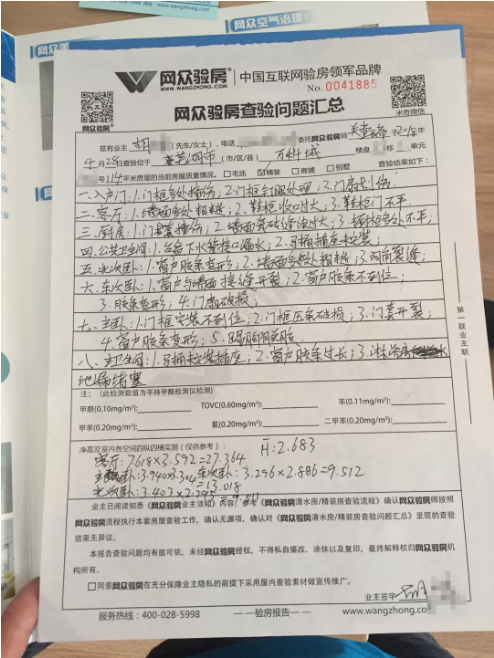 网众验房® 中国互联网验房领军品牌
WWW.WANGZHONG.COM
No.0041885
网众验房查验问题汇总
网众验房®
米奇微信
兹有业主 胡 (先生/女士),电话 委托网众验房
4月28日查验位于 市(市/区/县) 万科城 楼盘 栋 单元
号 114平米房屋的当前房屋质量情况。 □毛坯 ☑精装 □商铺 □别墅 查验结果如下:
一.入户门:1.门框多处撞伤;2.门框 处理;3.门扇划伤.
二.客厅:1.墙面多处粗糙;2.鞋柜收口大;3.鞋柜门不平.
三.厨房:1.门套撞伤;2.墙面 缝过大;3. 多处不平.
四.公共卫生间:1.台盆下水管接口漏水;2.马桶插座松装;
五.北次卧:1.窗户胶条变形;2.墙面多处粗糙;3. 裂缝;
六.东次卧:1.窗户与墙面接缝开裂;2.窗户胶条不到位;
3.胶条变形;4.门 破损;
七.主卧:1.门框安装不到位;2.门框压条破损;3.门套开裂;
4.窗户胶条变形;5.踢脚脱胶.
八.主卫生间:1.马桶 插座;2.窗户胶条过长;3.淋浴房
地漏堵塞
注:(此检测数值为手持甲醛检测仪检测)
甲醛(0.10mg/m³): TOVC(0.60mg/m³): 苯(0.11mg/m³):
甲苯(0.20mg/m³): 氨(0.20mg/m³): 二甲苯(0.20mg/m³):
净高及室内各空间四纵四横实测(仅供参考):
H:2.683
客厅:7.618×3.592=27.364
主卧:3.940×3.304=13.018 东次卧:3.296×2.886=9.512
北次卧:3.403×2.
业主已阅读知悉《网众验房业主须知》内容,参考《网众验房清水房/精装房查验流程》确认网众验房师按照
网众验房流程执行本套房屋查验工作,确认无漏项,确认对《网众验房清水房/精装房查验问题汇总》呈现的查验
结果无异议。
本报告查验问题均有据可依,未经网众验房授权,不得私自篡改、涂抹以及复印,最终解释权归网众验房机
构所有。
□同意网众验房在充分保障业主隐私的前提下采用屋内查验素材做宣传推广。
业主签字:
服务热线:400-028-5998 —验房报告— www.wangzhong.co
第一联业主联
网众空气治理